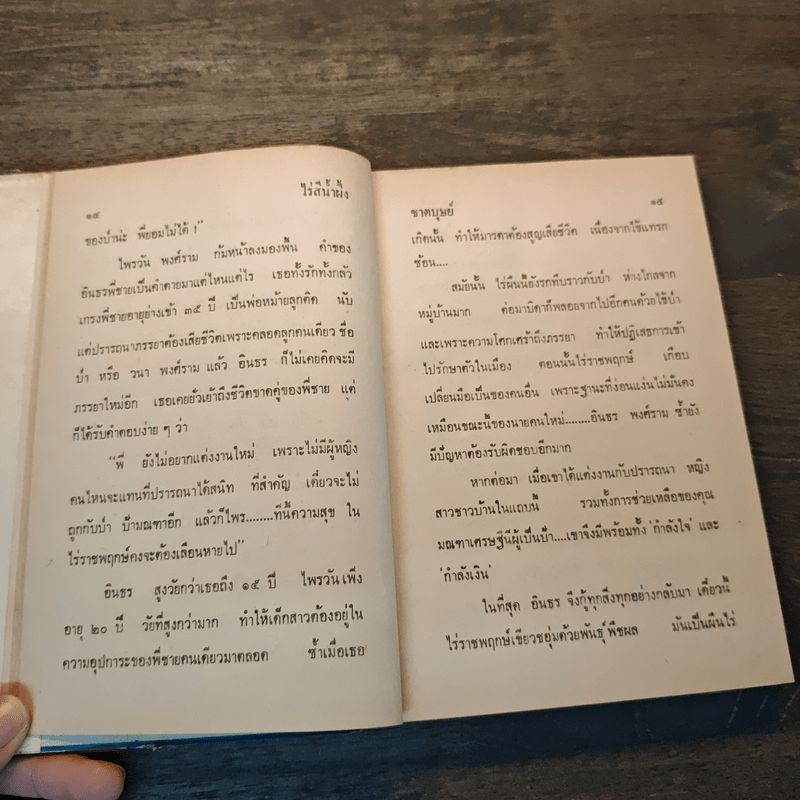 ๑๔
ไร่สีน้ำผึ้ง
ของป๋าน่ะ พี่ยอมไม่ได้ !"
ไพรวัน พงศ์ราม ก้มหน้าลงมองพื้น คำของ
อินธรพี่ชายเป็นคำตายมาแต่ไหนแต่ไร เธอทั้งรักทั้งกลัว
เกรงพี่ชายอายุย่างเข้า ๓๕ ปี เป็นพ่อหม้ายลูกติด นับ
แต่ปรารถนาภรรยาต้องเสียชีวิตเพราะคลอดลูกคนเดียว ชื่อ
ป๋า หรือ วนา พงศ์ราม แล้ว อินธร ก็ไม่เคยคิดจะมี
ภรรยาใหม่อีก เธอเคยยั่วเย้าถึงชีวิตขาดคู่ของพี่ชาย แต่
ก็ได้รับคำตอบง่าย ๆ ว่า
"พี่ ยังไม่อยากแต่งงานใหม่ เพราะไม่มีผู้หญิง
คนไหนจะแทนที่ปรารถนาได้สนิท ที่สำคัญ เดี๋ยวจะไม่
ถูกกับป๋า ป้ามณฑาอีก แล้วก็ไพร........ทีนี้ความสุข ใน
ไร่ราชพฤกษ์คงจะต้องเลือนหายไป"
อินธร สูงวัยกว่าเธอถึง ๑๕ ปี ไพรวันเพิ่ง
อายุ ๒๐ ปี วัยที่สูงกว่ามาก ทำให้เด็กสาวต้องอยู่ใน
ความอุปการะของพี่ชายคนเดียวมาตลอด ซ้ำเมื่อเธอ
ชาตบุษย์
๑๕
เกิดนั้น ทำให้มารดาต้องสูญเสียชีวิต เนื่องจากไข้แทรก
ซ้อน....
สมัยนั้น ไร่ผืนนี้ยังรกทึบราวกับป่า ห่างไกลจาก
หมู่บ้านมาก ต่อมาบิดาก็พลอยจากไปอีกคนด้วยไข้ป่า
และเพราะความโศกเศร้าถึงภรรยา ทำให้ปฏิเสธการเข้า
ไปรักษาตัวในเมือง ตอนนั้นไร่ราชพฤกษ์ เกือบ
เปลี่ยนมือเป็นของคนอื่น เพราะฐานะที่ง่อนแง่นไม่มั่นคง
เหมือนขณะนี้ของนายคนใหม่........อินธร พงศ์ราม ซ้ำยัง
มีปัญหาต้องรับผิดชอบอีกมาก
หากต่อมา เมื่อเขาได้แต่งงานกับปรารถนา หญิง
สาวชาวบ้านในแถบนี้ รวมทั้งการช่วยเหลือของคุณ
มณฑาเศรษฐีนีผู้เป็นป้า....เขาจึงมีพร้อมทั้ง 'กำลังใจ' และ
'กำลังเงิน'
ในที่สุด อินธร จึงกู้ทุกสิ่งทุกอย่างกลับมา เดี๋ยวนี้
ไร่ราชพฤกษ์เขียวชอุ่มด้วยพันธุ์พืชผล มันเป็นผืนไร่